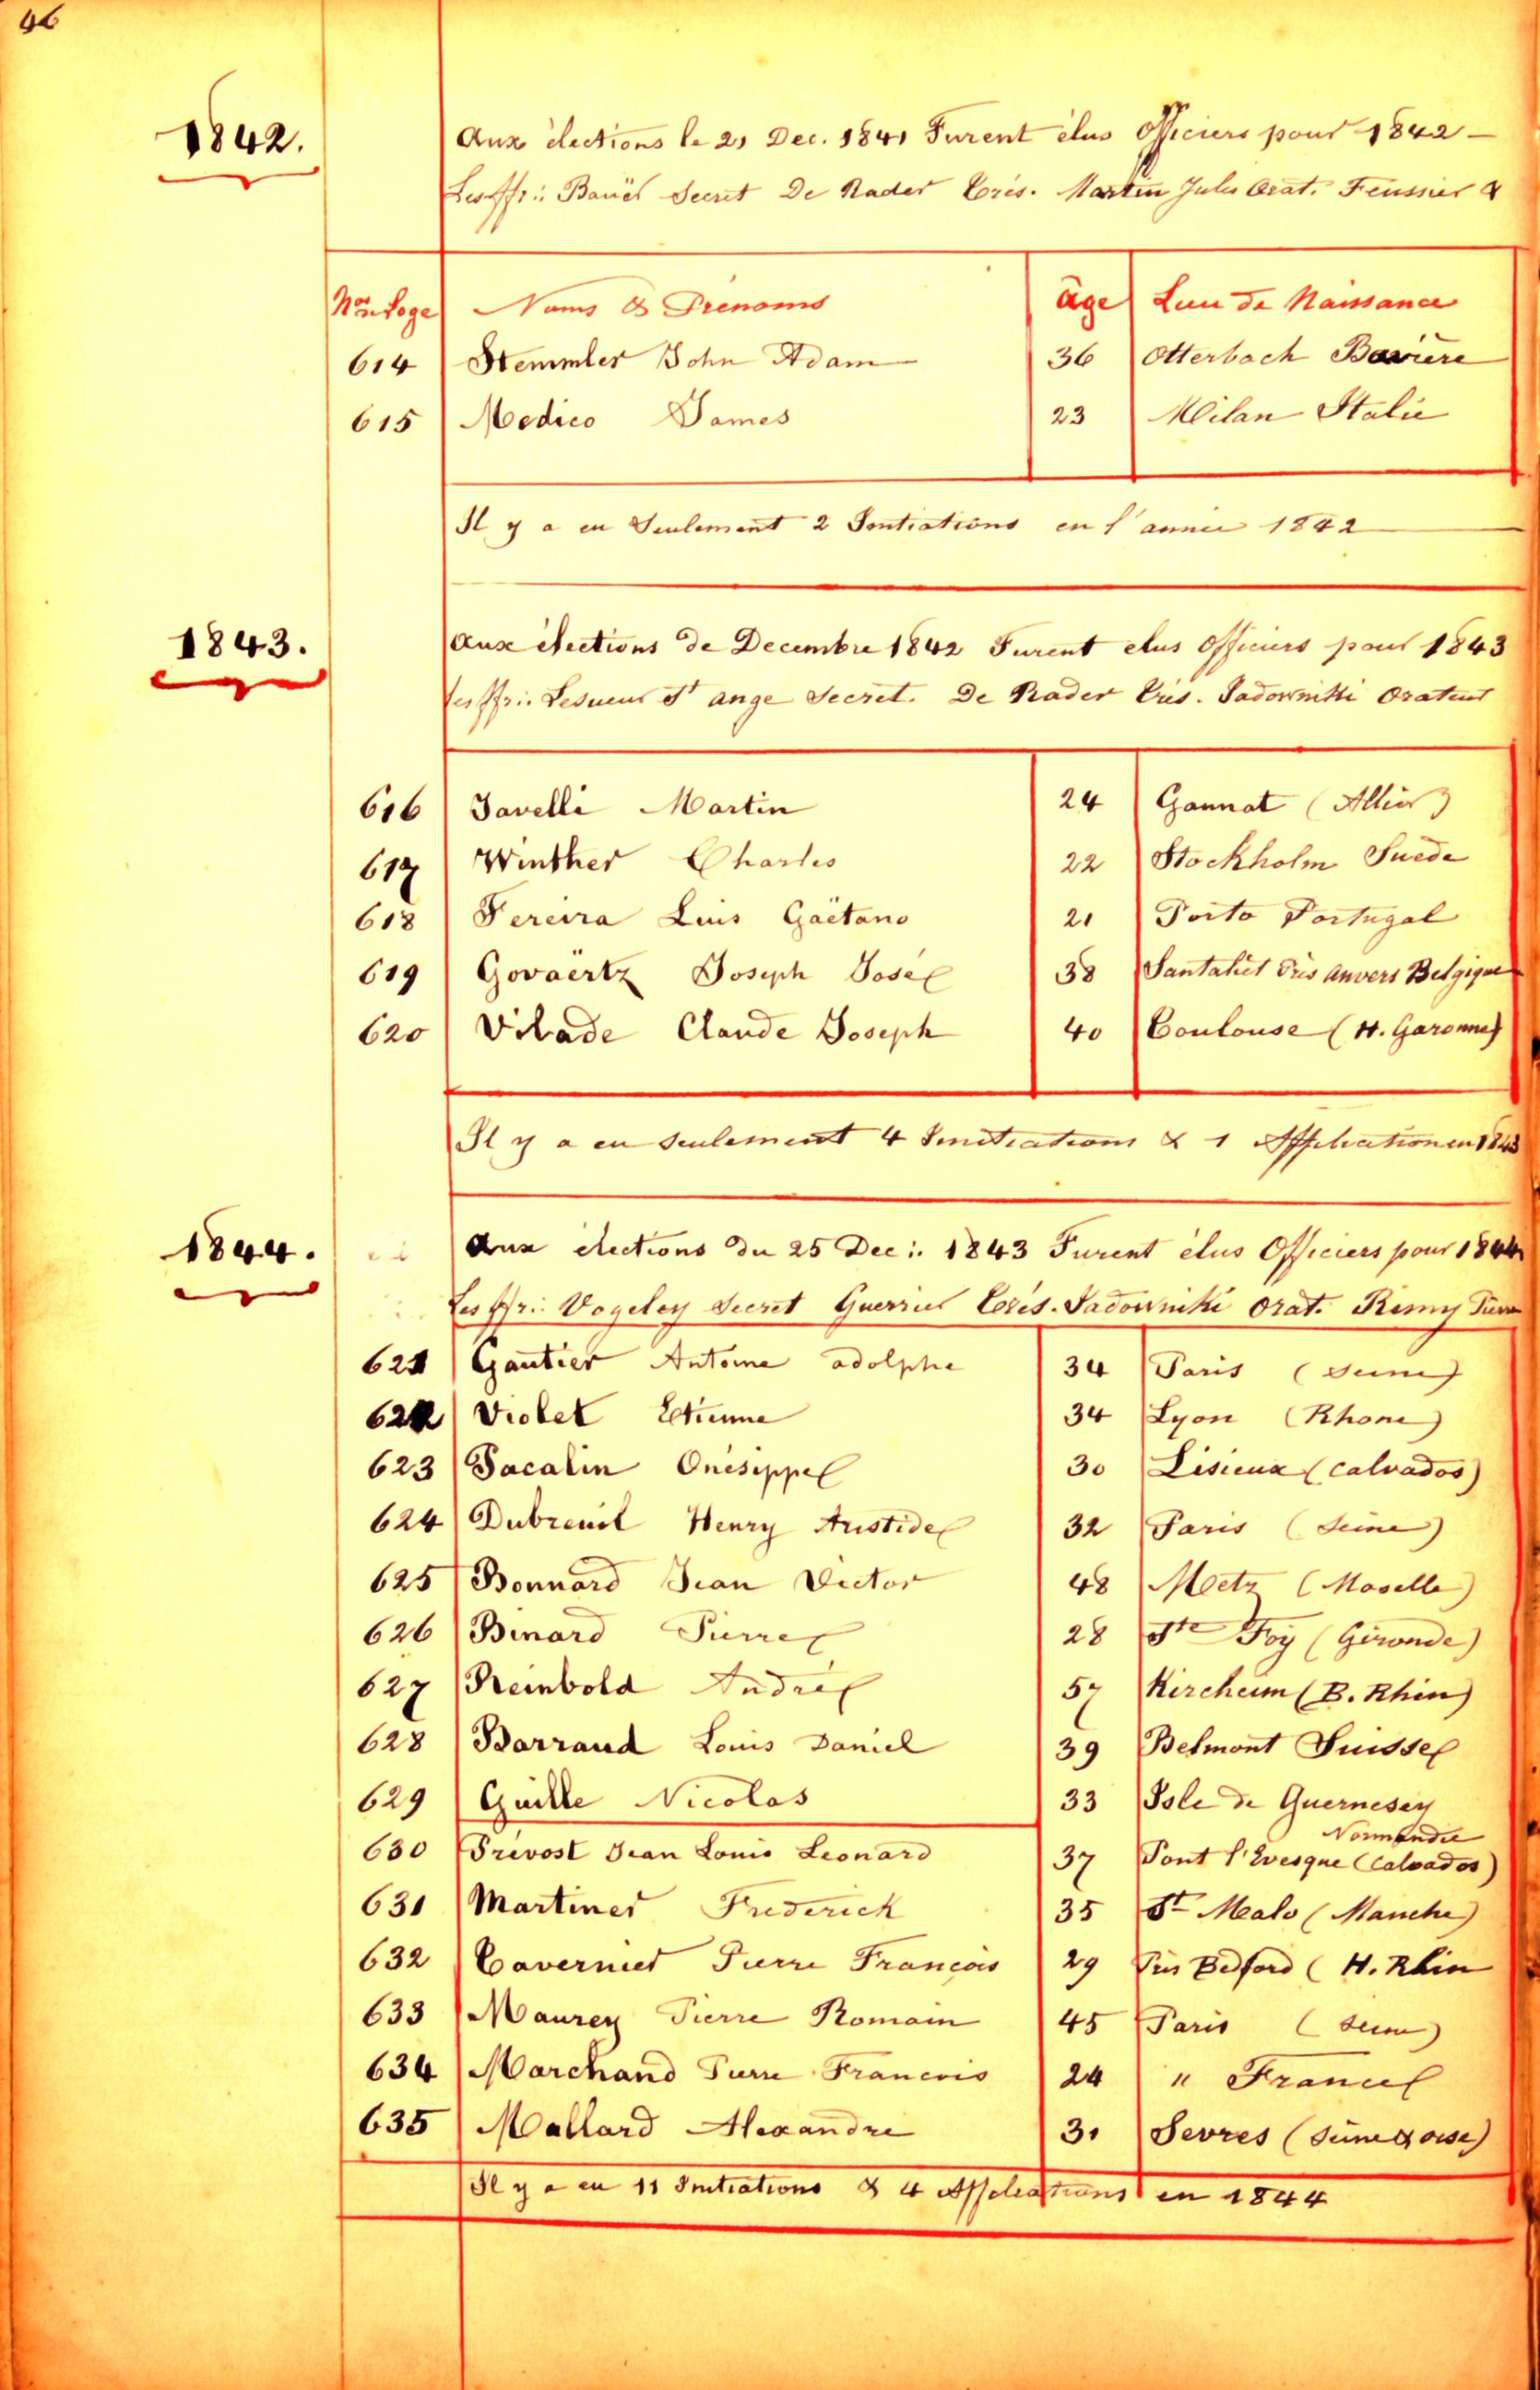 46
1842.
Aux élections le 21 Dec. 1841 Furent élus Officiers pour 1842 —
Les ffr∴ Bauër Secret De Rader Trés. Martin Jules Orat. Feussier &
Nos de Loge Noms & Prenoms âge Lieu de Naissance
614 Stemmler John Adam 36 Otterbach Baviere
615 Medico James 23 Milan Italie
Il y a eu Seulement 2 Initiations en l'année 1842
1843.
Aux élections de Decembre 1842 Furent élus Officiers pour 1843
les ffr∴ Lesueur St ange Secret. De Rader Trés. Sadownitki Orateur
616 Javelli Martin 24 Gannat (Allier)
617 Winther Charles 22 Stockholm Suede
618 Pereira Luis Gaëtano 21 Porto Portugal
619 Govaërtz Joseph José 38 Santaliet Près Anvers Belgique
620 Vilade Claude Joseph 40 Toulouse (H. Garonne)
Il y a eu seulement 4 Initiations & 1 Affiliation en 1843
1844.
Aux élections du 25 Dec∴ 1843 Furent élus Officiers pour 1844
Les ffr∴ Vogeley Secret Guerrier Trés. Sadowniki Orat. Remy Pierre
621 Gautier Antoine adolphe 34 Paris (Seine)
622 Violet Etienne 34 Lyon (Rhone)
623 Pacalin Onésippe 30 Lisieux (Calvados)
624 Dubreuil Henry Aristide 32 Paris (Seine)
625 Bonnard Jean Victor 48 Metz (Moselle)
626 Binard Pierre 28 Ste Foy (Gironde)
627 Reinbold André 57 Kircheim (B. Rhin)
628 Barraud Louis Daniel 39 Belmont Suisse
629 Guille Nicolas 33 Isle de Guernesey
630 Prévost Jean Louis Leonard 37 Pont l'Evesque (Calvados) Normandie
631 Martiner Frederick 35 St Malo (Manche)
632 Tavernier Pierre François 29 Près Bedford (H. Rhin
633 Maurey Pierre Romain 45 Paris (Seine)
634 Marchand Pierre Francois 24 " France
635 Mallard Alexandre 31 Sevres (Seine & oise)
Il y a eu 11 Initiations & 4 Affiliations en 1844